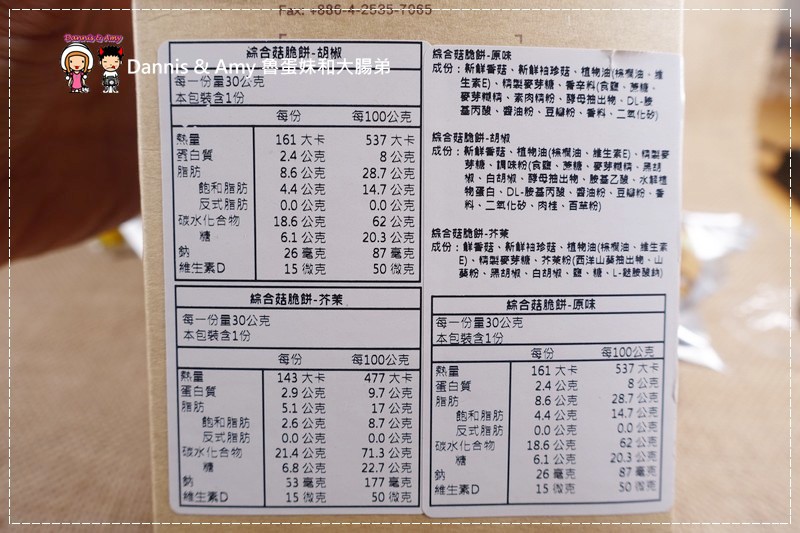 Fax: +886-4-2535-7085
Dannis & Amy
Dannis & Amy 魯蛋妹和大腸弟
綜合菇脆餅-胡椒
每一份量30公克
本包裝含1份
每份 每100公克
熱量 161 大卡 537 大卡
蛋白質 2.4 公克 8 公克
脂肪 8.6 公克 28.7 公克
飽和脂肪 4.4 公克 14.7 公克
反式脂肪 0.0 公克 0.0 公克
碳水化合物 18.6 公克 62 公克
糖 6.1 公克 20.3 公克
鈉 26 毫克 87 毫克
維生素D 15 微克 50 微克
綜合菇脆餅-原味
成份：新鮮香菇、新鮮袖珍菇、植物油(棕櫚油、維
生素E)、精製麥芽糖、香辛料(食鹽、蔗糖、
麥芽糊精、素肉精粉、酵母抽出物、DL-胺
基丙酸、醬油粉、豆瓣粉、香料、二氧化矽)
綜合菇脆餅-胡椒
成份：新鮮香菇、植物油(棕櫚油、維生素E)、精製麥
芽糖、調味粉(食鹽、蔗糖、麥芽糊精、黑胡
椒、白胡椒、酵母抽出物、胺基乙酸、水解植
物蛋白、DL-胺基丙酸、醬油粉、豆瓣粉、香
料、二氧化矽、肉桂、百草粉)
綜合菇脆餅-芥茉
成份：鮮香菇、新鮮袖珍菇、植物油(棕櫚油、維生素
E)、精製麥芽糖、芥茉粉(西洋山葵抽出物、山
葵粉、黑胡椒、白胡椒、鹽、糖、L-麩胺酸鈉)
綜合菇脆餅-芥茉
每一份量30公克
本包裝含1份
每份 每100公克
熱量 143 大卡 477 大卡
蛋白質 2.9 公克 9.7 公克
脂肪 5.1 公克 17 公克
飽和脂肪 2.6 公克 8.7 公克
反式脂肪 0.0 公克 0.0 公克
碳水化合物 21.4 公克 71.3 公克
糖 6.8 公克 22.7 公克
鈉 53 毫克 177 毫克
維生素D 15 微克 50 微克
綜合菇脆餅-原味
每一份量30公克
本包裝含1份
每份 每100公克
熱量 161 大卡 537 大卡
蛋白質 2.4 公克 8 公克
脂肪 8.6 公克 28.7 公克
飽和脂肪 4.4 公克 14.7 公克
反式脂肪 0.0 公克 0.0 公克
碳水化合物 18.6 公克 62 公克
糖 6.1 公克 20.3 公克
鈉 26 毫克 87 毫克
維生素D 15 微克 50 微克